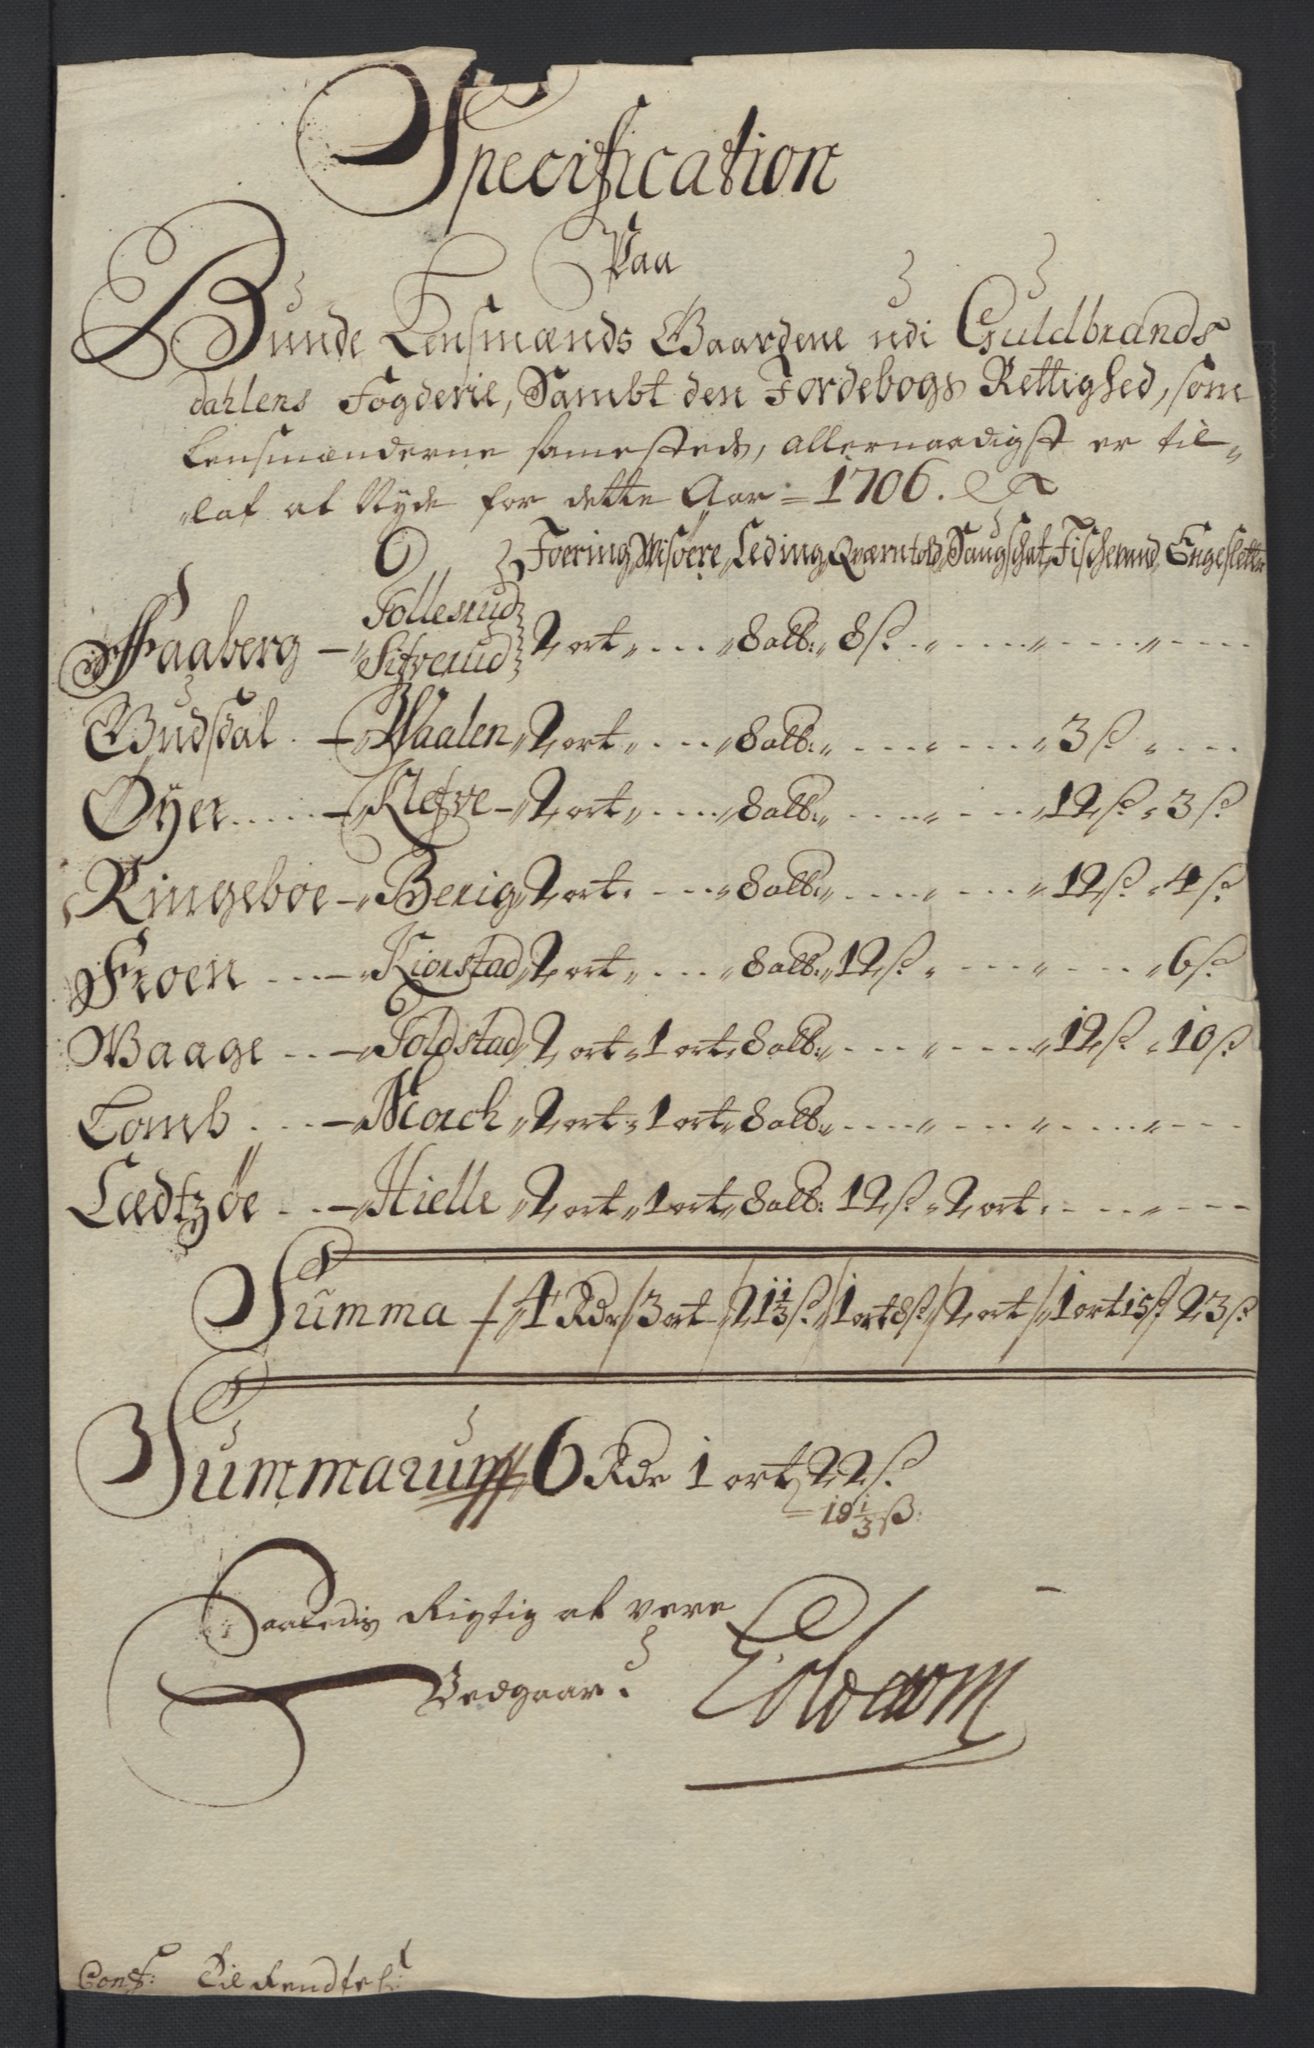 Specification
Paa
Bunde Lensmænds Gaardene udi Guldbrands
dahlens Fogderie, Sambt den Jordebogs Rettighed, som
Lensmænderne samesteds, allernaadigst er til-
lat at Nyde for dette Aar = 1706.
Foering, Wisøere, Leding, Qværntold, Saugschat, Fischevand, Engesletter
Faaberg - Jollerud Sifverud 2 ort „ .... „ 8 alb: „ 8 ß „ .... „ .... „ ....
Gudsdal . - Waalen „ 2 ort „ .... „ 8 alb: „ .... „ .... „ 3 ß „ ....
Øyer ..... - Klefve - „ 2 ort „ .... „ 8 alb: „ .... „ .... „ 12 ß „ 3 ß
Ringeboe - „ Berig „ 2 ort „ .... „ 8 alb: „ .... „ .... „ 12 ß „ 4 ß
Froen ... - „ Kiorstad „ 2 ort „ .... „ 8 alb: „ 12 ß „ .... „ .... „ 6 ß
Waage ... - „ Foldstad „ 2 ort „ 1 ort „ 8 alb: „ .... „ .... „ 12 ß „ 10 ß
Lomb ... - „ Morch „ 2 ort „ 1 ort „ 8 alb: „ .... „ .... „ .... „ ....
Lædtzøe ... - „ Hielle „ 2 ort „ 1 ort „ 8 alb: 12 ß „ 2 ort .... „ ....
Summa / 4 Rdr / 3 ort / 21 1/3 ß / 1 ort 8 ß / 2 ort / 1 ort 15 ß / 23 ß
Summarum 6 Rdr 1 ort 22 ß
19 1/3 ß
Saaledis Rigtig at vere
Vedgaar.
Conf: Til Rendte